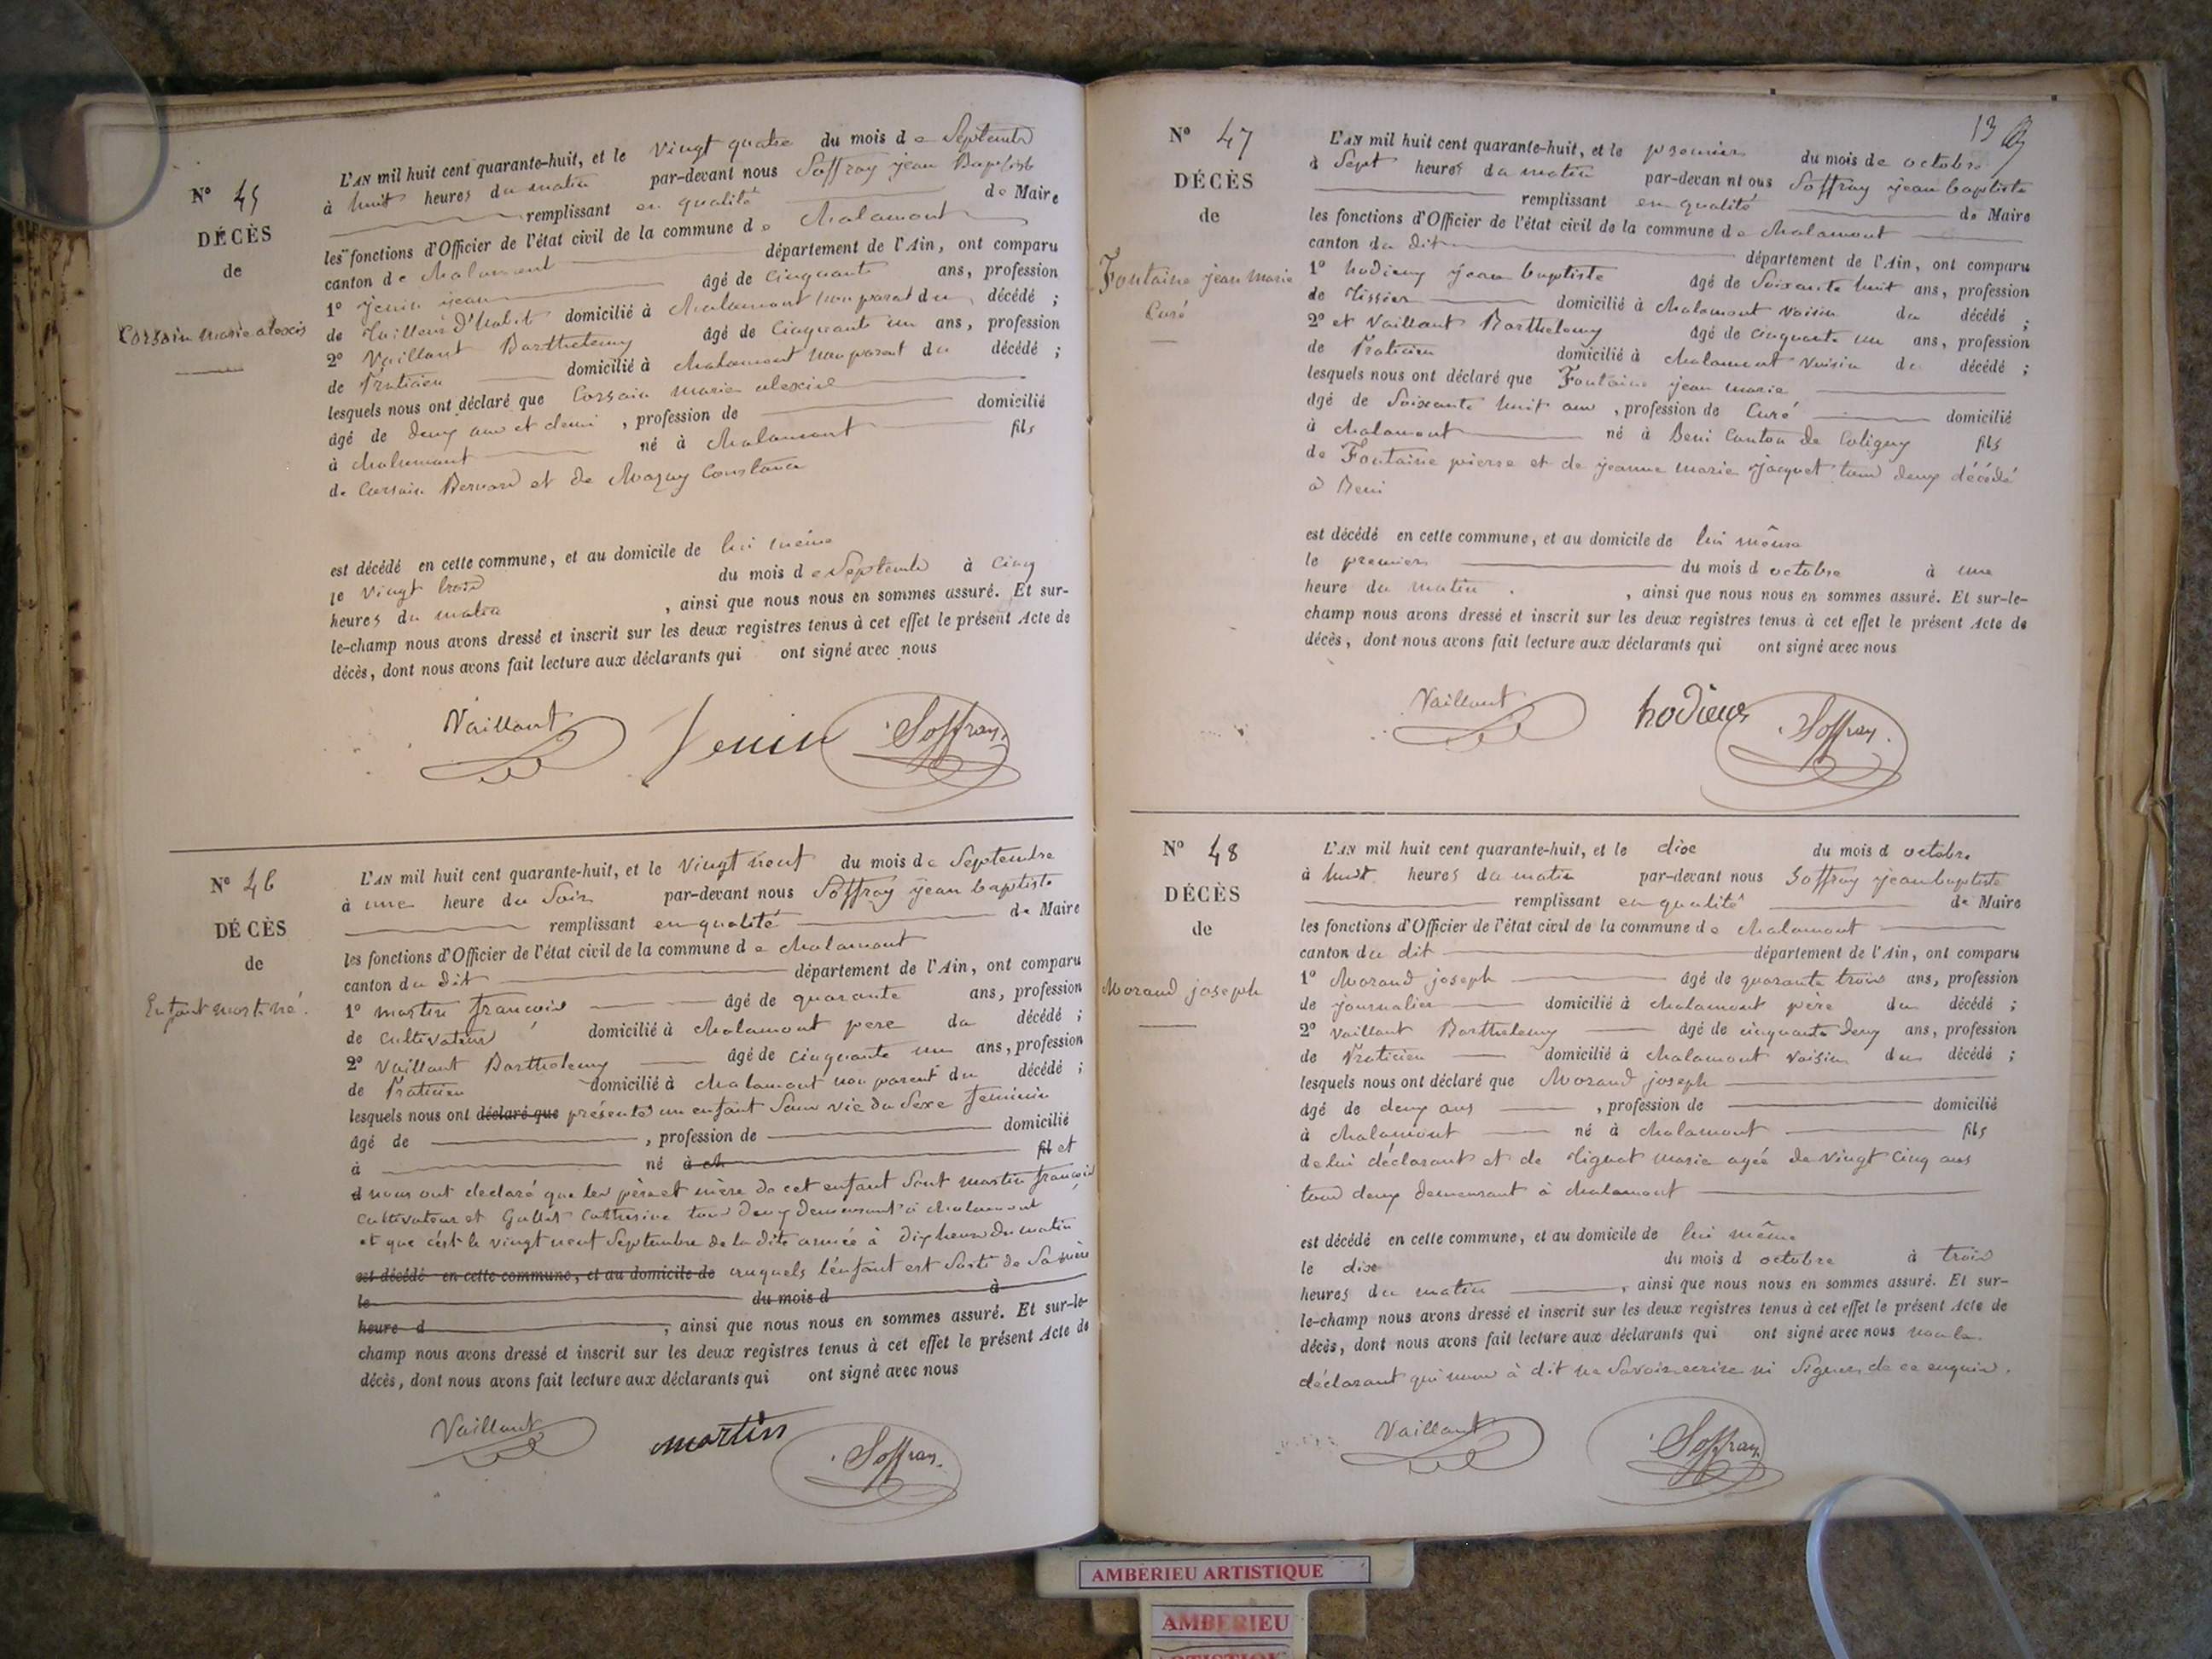 N° 45
DÉCÈS
de
Corsain marie alexis
L'AN mil huit cent quarante-huit, et le vingt quatre du mois de Septembre
à huit heures du matin par-devant nous Soffray jean Baptiste
remplissant en qualité de Maire
les fonctions d'Officier de l'état civil de la commune de chalamont
canton de chalamont département de l'Ain, ont comparu
1° jenin jean âgé de cinquante ans, profession
de Tailleur d'habit domicilié à chalamont non parent du décédé ;
2° Vaillant Barthelemy âgé de cinquante un ans, profession
de Praticien domicilié à chalamont non parent du décédé ;
lesquels nous ont déclaré que Corsain marie alexis
âgé de deux ans et demi , profession de domicilié
à chalamont né à chalamont fils
de Corsain Bernard et de Constance
est décédé en cette commune, et au domicile de lui même
le vingt trois du mois de Septembre à cinq
heures du matin , ainsi que nous nous en sommes assuré. Et sur-
le-champ nous avons dressé et inscrit sur les deux registres tenus à cet effet le présent Acte de
décès, dont nous avons fait lecture aux déclarants qui ont signé avec nous
Vaillant Jenin Soffray
N° 46
DÉCÈS
de
Enfant mort né.
L'AN mil huit cent quarante-huit, et le vingt neuf du mois de Septembre
à une heure du Soir par-devant nous Soffray jean baptiste
remplissant en qualité de Maire
les fonctions d'Officier de l'état civil de la commune de chalamont
canton du dit département de l'Ain, ont comparu
1° martin françois âgé de quarante ans, profession
de cultivateur domicilié à chalamont pere du décédé ;
2° Vaillant Barthelemy âgé de cinquante un ans, profession
de Praticien domicilié à chalamont non parent du décédé ;
lesquels nous ont déclaré que présenté un enfant Sans vie du Sexe feminin
âgé de , profession de domicilié
à né à ch fil et
d nous ont declaré que les père et mère de cet enfant Sont martin françois
cultivateur et Gallet Catherine tous deux demeurant à chalamont
et que c'est le vingt neuf Septembre de la dite année à dix heures du matin
est décédé en cette commune, et au domicile de auquels l'enfant est Sorti de Sa mère
le du mois d à
heure d , ainsi que nous nous en sommes assuré. Et sur-le-
champ nous avons dressé et inscrit sur les deux registres tenus à cet effet le présent Acte de
décès, dont nous avons fait lecture aux déclarants qui ont signé avec nous
Vaillant martin Soffray
13
N° 47
DÉCÈS
de
Fontaine jean marie
Curé
L'AN mil huit cent quarante-huit, et le premier du mois de octobre
à Sept heures du matin par-devan nt ous Soffray jean baptiste
remplissant en qualité de Maire
les fonctions d'Officier de l'état civil de la commune de chalamont
canton du dit département de l'Ain, ont comparu
1° hodieux jean baptiste âgé de Soixante huit ans, profession
de Tissier domicilié à chalamont voisin du décédé ;
2° et Vaillant Barthelemy âgé de cinquante un ans, profession
de Praticien domicilié à chalamont voisin du décédé ;
lesquels nous ont déclaré que Fontaine jean marie
âgé de Soixante huit ans , profession de Curé domicilié
à chalamont né à Beni Canton de Coligny fils
de Fontaine pierre et de jeanne marie jacquet tous deux décédé
à Beni
est décédé en cette commune, et au domicile de lui même
le premier du mois d octobre à une
heure du matin , ainsi que nous nous en sommes assuré. Et sur-le-
champ nous avons dressé et inscrit sur les deux registres tenus à cet effet le présent Acte de
décès, dont nous avons fait lecture aux déclarants qui ont signé avec nous
Vaillant hodieux Soffray
N° 48
DÉCÈS
de
Morand joseph
L'AN mil huit cent quarante-huit, et le dixe du mois d octobre
à huit heures du matin par-devant nous Soffray jean baptiste
remplissant en qualité de Maire
les fonctions d'Officier de l'état civil de la commune de chalamont
canton du dit département de l'Ain, ont comparu
1° Morand joseph âgé de quarante trois ans, profession
de journalier domicilié à chalamont père du décédé ;
2° Vaillant Barthelemy âgé de cinquante deux ans, profession
de Praticien domicilié à chalamont voisin du décédé ;
lesquels nous ont déclaré que Morand joseph
âgé de deux ans , profession de domicilié
à chalamont né à chalamont fils
de lui déclarant et de Tignat marie agée de vingt cinq ans
tous deux demeurant à chalamont
est décédé en cette commune, et au domicile de lui même
le dixe du mois d octobre à trois
heures du matin , ainsi que nous nous en sommes assuré. Et sur-
le-champ nous avons dressé et inscrit sur les deux registres tenus à cet effet le présent Acte de
décès, dont nous avons fait lecture aux déclarants qui ont signé avec nous non le
déclarant qui nous à dit ne Savoir ecrire ni Signer de ce enquis.
Vaillant Soffray
AMBERIEU ARTISTIQUE
AMBERIEU